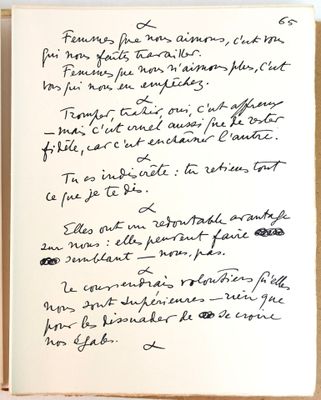 65
Femmes que nous aimons, c'est vous
qui nous faites travailler.
Femmes que nous n'aimons plus, c'est
vous qui nous en empêchez.
Tromper, trahir, oui, c'est affreux
— mais c'est cruel aussi que de rester
fidèle, car c'est enchaîner l'autre.
Tu es indiscrète : tu retiens tout
ce que je te dis.
Elles ont un redoutable avantage
sur nous : elles peuvent faire
semblant — nous, pas.
Je conviendrais volontiers qu'elles
nous sont supérieures — rien que
pour les dissuader de se croire
nos égales.